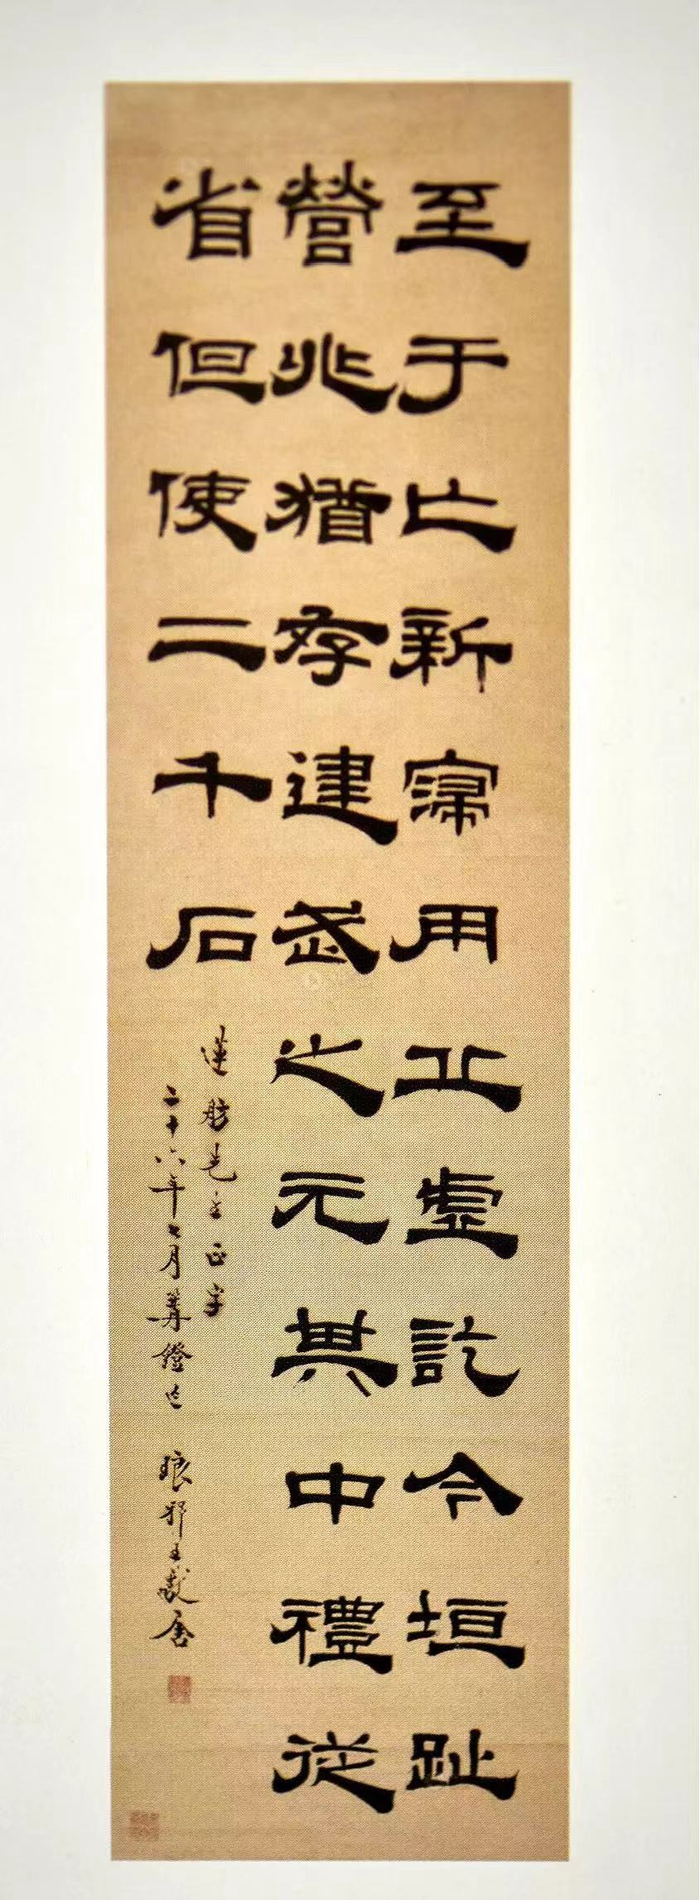 至于亡新寖用丘虛訖今垣趾
營兆猶存建武之元其中禮從
省但使二千石
蓮舫先生正字
二十六年七月篝鐙
琅邪王獻唐